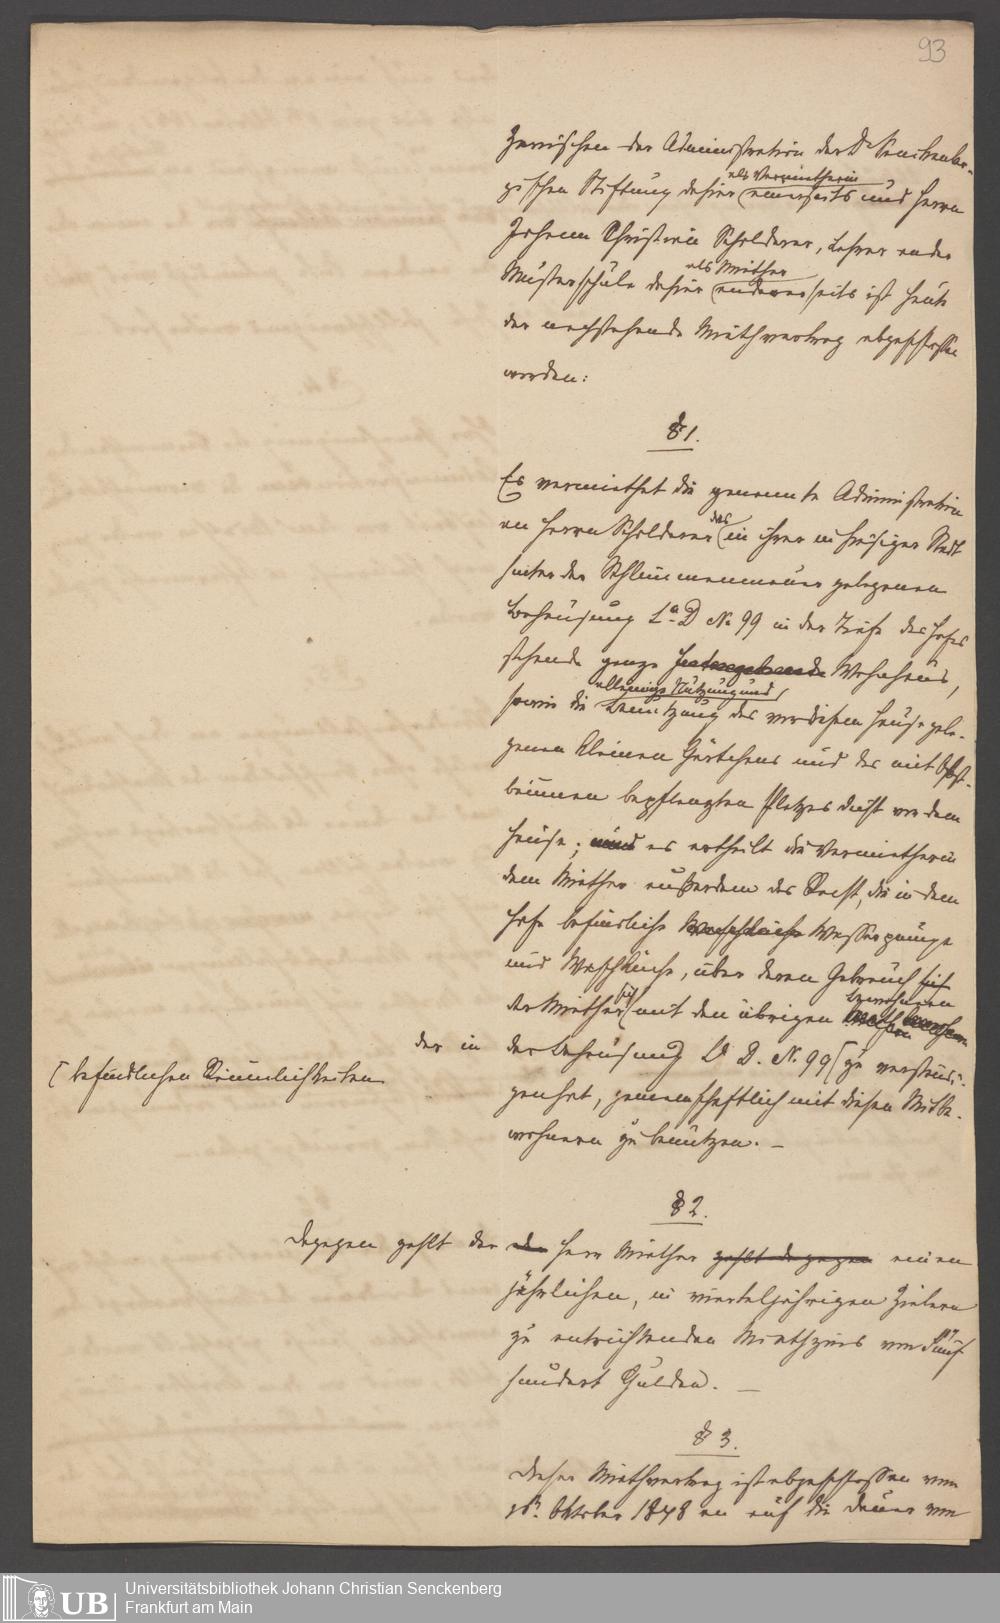 93
Zwischen der Administration der Dr Senckenber-
gischen Stiftung dahier (als Vermietherin
einerseits und Herrn
Johann Christian Scholderer, Lehrer an der
Musterschule dahier (als Miether
andererseits ist heute
der nachstehende Miethvertrag abgeschlossen
worden:
§ 1.
Es vermiethet die genannte Administration
an Herrn Scholderer (das in ihrer in hiesiger Stadt
hinter der Schlimmenmauer gelegenen
Behausung La. D No 99 in der Tiefe des Hofes
stehende ganze Wohnhaus,
sowie die alleinige Nutzung und
Benutzung des vor diesem Hause gele-
genen kleinen Gärtchens und des mit Obst-
bäumen bepflanzten Platzes dicht vor dem
Hause; und es ertheilt die Vermietherin
dem Miether außerdem das Recht, die in dem
Hofe befindliche Waschküche Wasserpumpe
und Waschküche, über deren Gebrauch sich
der Miether (sich mit den übrigen Bewohnern
der in der Behausung La D. No. 99 [ zu verstän-
[ befindlichen Räumlichkeiten
gen hat, gemeinschaftlich mit diesen Mitbe-
wohnern zu benutzen. —
§ 2.
Dagegen zahlt der der Herr Miether zahlt dagegen einen
jährlichen, in vierteljährigen Zielern
zu entrichtenden Miethzins von Fünf
hundert Gulden. —
§ 3.
Dieser Miethvertrag ist abgeschlossen vom
Oktober 1848 an auf die Dauer von
UB
Universitätsbibliothek Johann Christian Senckenberg
Frankfurt am Main